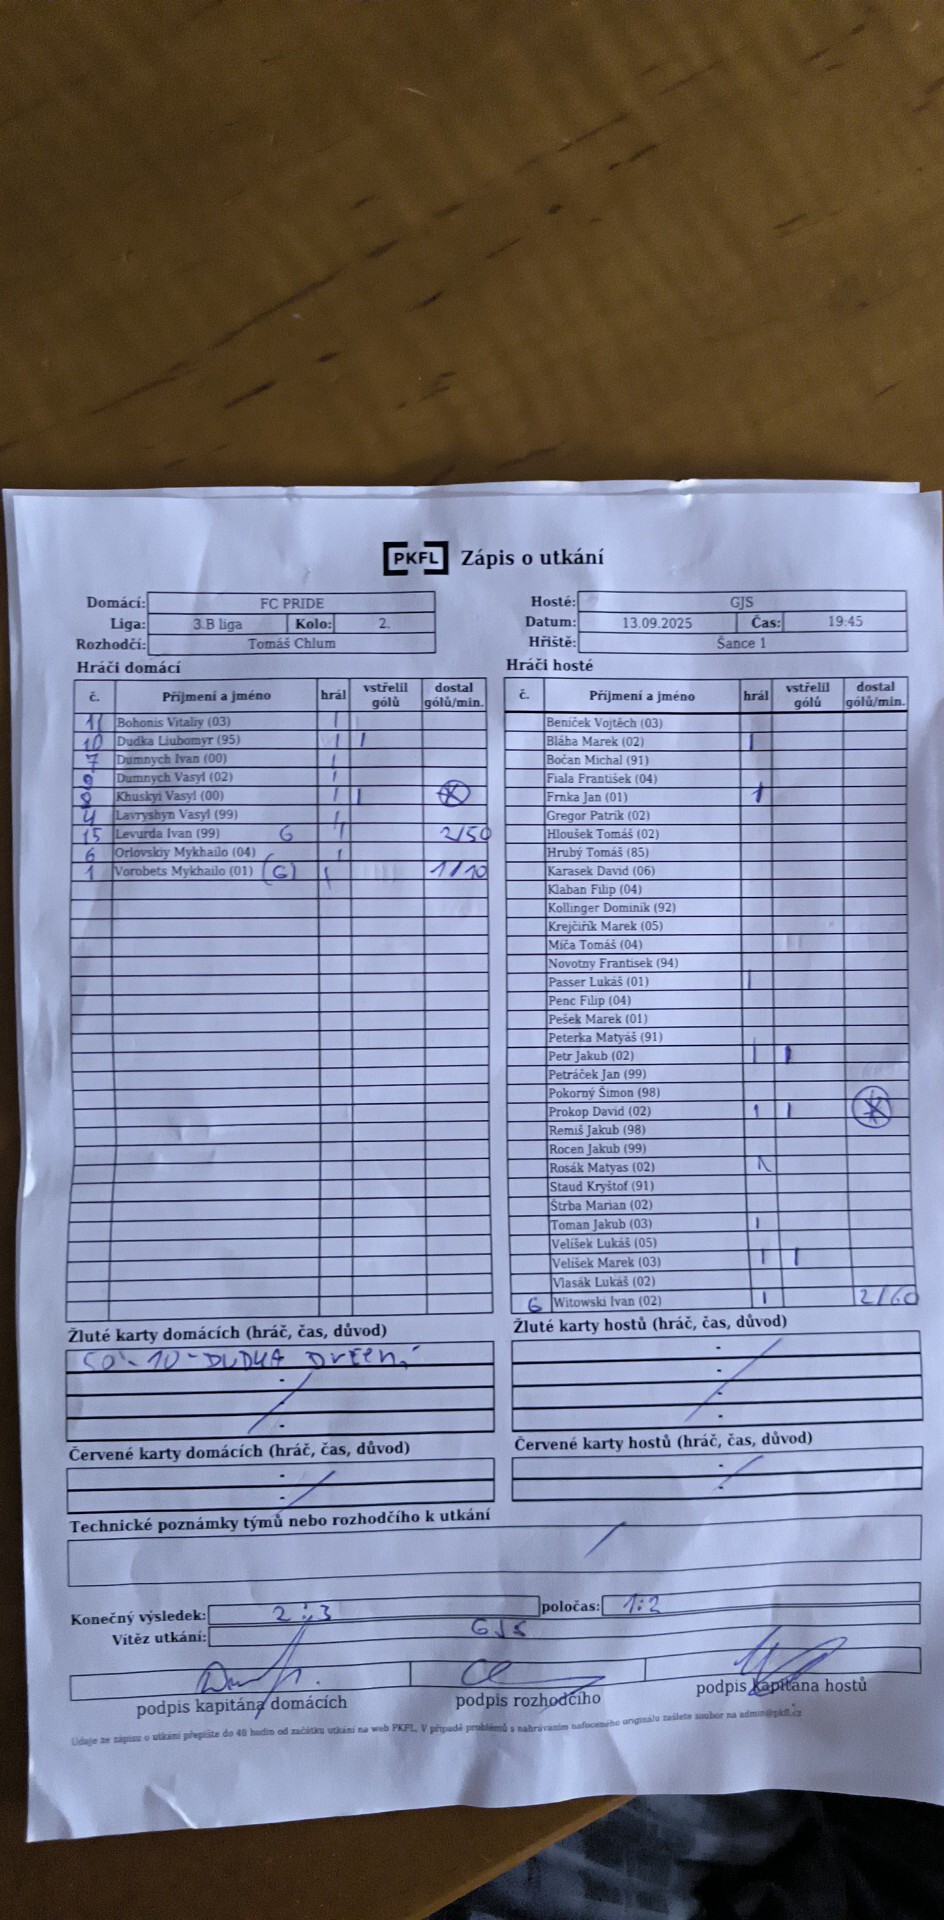 PKFL Zápis o utkání
Domácí: FC PRIDE
Liga: 3.B liga Kolo: 2.
Rozhodčí: Tomáš Chlum
Hosté: GJS
Datum: 13.09.2025 Čas: 19:45
Hřiště: Šance 1
Hráči domácí
č. Příjmení a jméno hrál vstřelil gólů dostal gólů/min.
11 Bohonis Vitaliy (03) 1
10 Dudka Liubomyr (95) 1 1
7 Dumnych Ivan (00) 1
9 Dumnych Vasyl (02) 1
8 Khuskyi Vasyl (00) 1 1
4 Lavryshyn Vasyl (99) 1
15 Levurda Ivan (99) G 1 2/50
6 Orlovskiy Mykhailo (04) 1
1 Vorobets Mykhailo (01) (G) 1 1/10
Hráči hosté
č. Příjmení a jméno hrál vstřelil gólů dostal gólů/min.
Beníček Vojtěch (03)
Bláha Marek (02) 1
Bočan Michal (91)
Fiala František (04)
Frnka Jan (01) 1
Gregor Patrik (02)
Hloušek Tomáš (02)
Hrubý Tomáš (85)
Karasek David (06)
Klaban Filip (04)
Kollinger Dominik (92)
Krejčiřík Marek (05)
Míča Tomáš (04)
Novotny Frantisek (94)
Passer Lukáš (01) 1
Penc Filip (04)
Pešek Marek (01)
Peterka Matyáš (91)
Petr Jakub (02) 1 1
Petráček Jan (99)
Pokorný Šimon (98)
Prokop David (02) 1 1
Remiš Jakub (98)
Rocen Jakub (99)
Rosák Matyas (02) 1
Staud Kryštof (91)
Štrba Marian (02)
Toman Jakub (03) 1
Velíšek Lukáš (05)
Velíšek Marek (03) 1 1
Vlasák Lukáš (02)
G Witowski Ivan (02) 1 2/60
Žluté karty domácích (hráč, čas, důvod)
50'-10-DUDKA Držení
Žluté karty hostů (hráč, čas, důvod)
Červené karty domácích (hráč, čas, důvod)
Červené karty hostů (hráč, čas, důvod)
Technické poznámky týmů nebo rozhodčího k utkání
Konečný výsledek: 2:3 poločas: 1:2
Vítěz utkání: GJS
podpis kapitána domácích podpis rozhodčího podpis kapitána hostů
Údaje ze zápisu o utkání přepište do 48 hodin od začátku utkání na web PKFL. V případě problémů s nahráváním nafoceného originálu zašlete soubor na admin@pkfl.cz